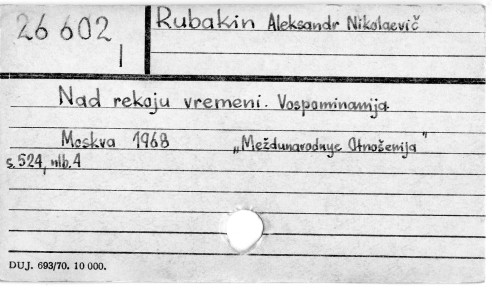 26 602
I
Rubakin Aleksandr Nikolaevič
Nad rekoju vremeni. Vospominamija
Moskva 1968 „Meždunarodnye Otnošenija"
s. 524, nlb. 4
DUJ. 693/70. 10 000.